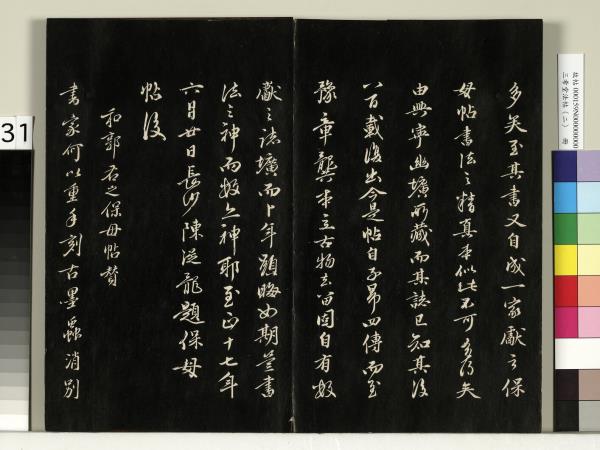 多矣至其書又自成一家獻之保
母帖書法之精真本似此不可多得矣
由興寧幽壙所藏而其誌已知其後
八百載復出今是帖自子昂四傳而至
豫章龔本立古物去留固自有數
獻之誌壙而卜年顯晦如期豈書
法之神而數亦神耶至正十七年
六月廿日長沙陳從龍題保母
帖後
和郭右之保母帖贊
書家何以重手刻古墨 消別
31
故帖 000159N000000000
三希堂法帖（二） 冊